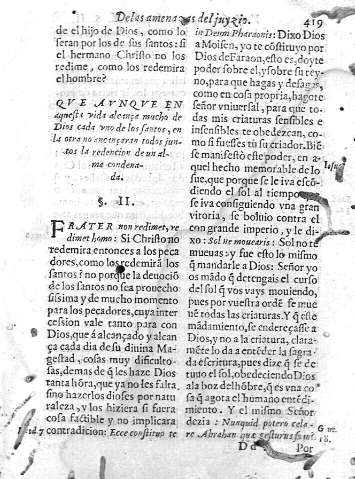 De las amenazas del juyzio. 419
de el hijo de Dios, como lo
seran por los de sus santos: si
el hermano Christo no los
redime, como los redimira
el hombre?
QVE AVNQVE EN
aquesta vida alcança mucho de
Dios cada vno de los santos, en
la otra no alcançaran todos jun-
tos la redencion de un al
ma condena
da.
§. II.
FRATER non redimet, re
dimet homo: Si Christo no
redimira entonces a los peca
dores, como los redimirà los
santos? no porque la deuociõ
de los santos no sea prouecho
sissima y de mucho momento
para los pecadores, cuya inter
cession vale tanto para con
Dios, que à alcançado y alcan
ça cada dia de su diuina Ma-
gestad, cosas muy dificulto-
sas, demas de q̃ les haze Dios
tanta hõra, que ya no les falta
sino hazerlos dioses por natu
raleza, y los hiziera si fuera
cosa factible y no implicara
contradicion: Ecce constituo te
in Deum Pharaonis: Dixo Dios
a Moisen, yo te cõstituyo por
Dios de Faraon, esto es, doy te
poder sobre el, y sobre su rey-
no, para que hagas y desagas,
como en cosa propria, hagote
señor vniuersal, para que to-
das mis criaturas sensibles e
insensibles te obedezcan, co-
mo si fuesses tù su criador. Biẽ
se manifestò este poder, en a-
quel hecho memorable de Io
sue, que porque se le iva escõ-
diendo el sol al tiempo
se iva consiguiendo vna gran
vitoria, se boluio contra el
con grande imperio, y le di-
xo: Sol ne mouearis: Sol no te
mueuas: y fue esto lo mismo
q̃ mandarle a Dios: Señor yo
os mãdo q̃ detengais el curso
del sol q̃ vos vays mouiendo,
pues por vuestra ordẽ se mue
uẽ todas las criaturas. Y q̃ esse
mãdamiento, se endereçasse a
Dios, y no a la criatura, clara-
mẽte lo da a entẽder la sagra
da escritura, pues dize q̃ se de
tuuo el sol, obedeciendo Dios
a la boz del hõbre, q̃ es vna co
sa q̃ agota el humano entẽdi-
miento. Y el mismo Señor
dezia: Nunquid potero cela-
re Abrahan que gesturus
18.
D d Por